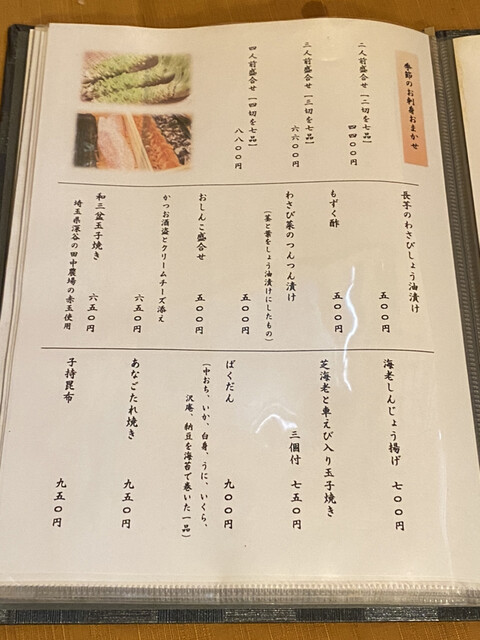 季節のお刺身おまかせ
二人前盛合せ【二切を七品】
四四〇〇円
三人前盛合せ【三切を七品】
六六〇〇円
四人前盛合せ【四切を七品】
八八〇〇円
長芋のわさびしょう油漬け
五〇〇円
もずく酢
五〇〇円
わさび菜のつんつん漬け
(茎と葉をしょう油漬けにしたもの)
五〇〇円
おしんこ盛合せ
五〇〇円
かつお酒盗とクリームチーズ添え
六五〇円
和三盆玉子焼き
埼玉県深谷の田中農場の赤玉使用
六五〇円
海老しんじょう揚げ
七〇〇円
芝海老と車えび入り玉子焼き
三個付
七五〇円
ばくだん
九〇〇円
(中おち、いか、白身、うに、いくら、
沢庵、納豆を海苔で巻いた一品)
あなごたれ焼き
九五〇円
子持昆布
九五〇円